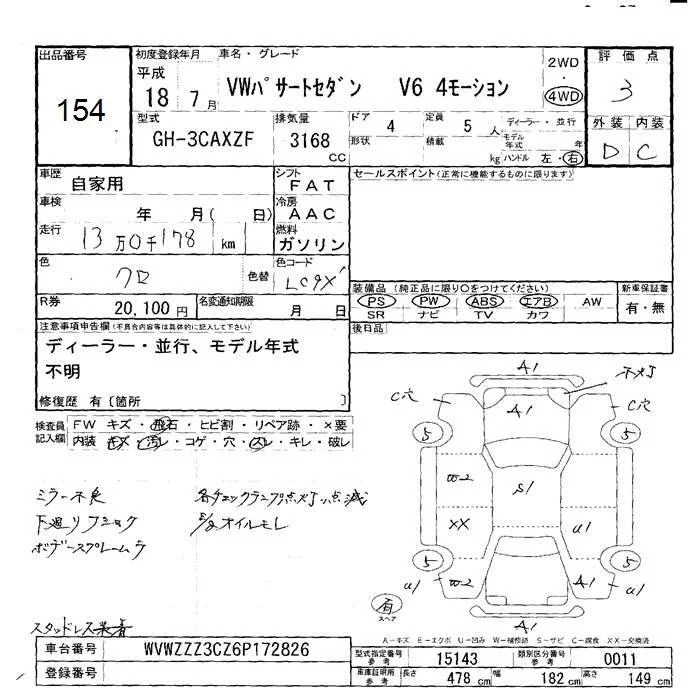 出品番号 初度登録年月 車名・グレード 2WD 評価点
154 平成 18 7月 VWパサートセダン V6 4モーション 4WD 3
型式 排気量 ドア 4 定員 5人 ディーラー・並行 外装 内装
GH-3CAXZF 3168 CC 形状 積載 kg モデル年式 年 ハンドル 左・右 D C
車歴 自家用 シフト FAT セールスポイント(正常に機能するものに限ります)
車検 年 月( 日) 冷房 AAC
走行 13万0千178 km 燃料 ガソリン
色 クロ 色替 色コード LC9X
装備品(純正品に限り○をつけてください) 新車保証書
PS PW ABS エアB AW 有・無
SR ナビ TV カワ
R券 20,100円 名変通知期限 月 日
後日品
注意事項申告欄(不具合内容等は具体的に記入して下さい)
ディーラー・並行、モデル年式
不明
修復歴 有〔箇所 〕
検査員記入欄 FW キズ・飛石・ヒビ割・リペア跡・×要
内装 キズ・汚レ・コゲ・穴・スレ・キレ・破レ
A1
C穴 A1 C穴
5 5
W2 S1
XX U1
5 5
U1 W2 A1 U1
有 スペア A1
ミラー不良 各チェックランプ点灯、点滅
下廻りフショク
スタッドレス装着
A-キズ E-エクボ U-凹み W-補修跡 S-サビ C-腐食 XX-交換済
車台番号 WVWZZZ3CZ6P172826 型式指定番号 参考 15143 類別区分番号 参考 0011
登録番号 車庫証明用 参考 長さ 478 cm 幅 182 cm 高さ 149 cm